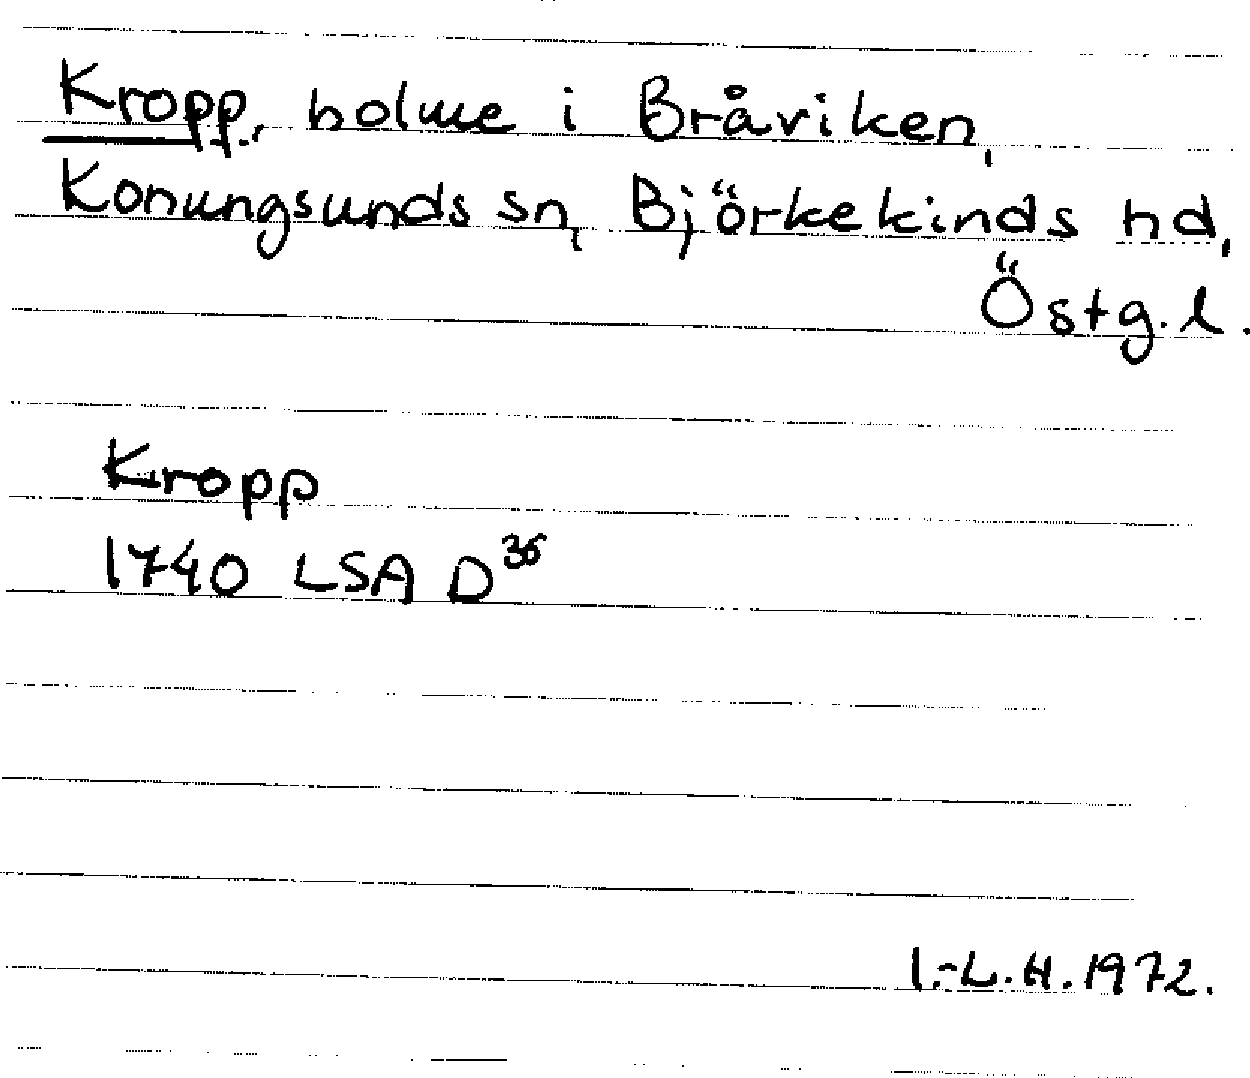 Kropp, holme i Bråviken,
Konungsunds sn, Björkekinds hd,
Östg.l.
Kropp
1740 LSA D³⁶
I.-L.H. 1972.